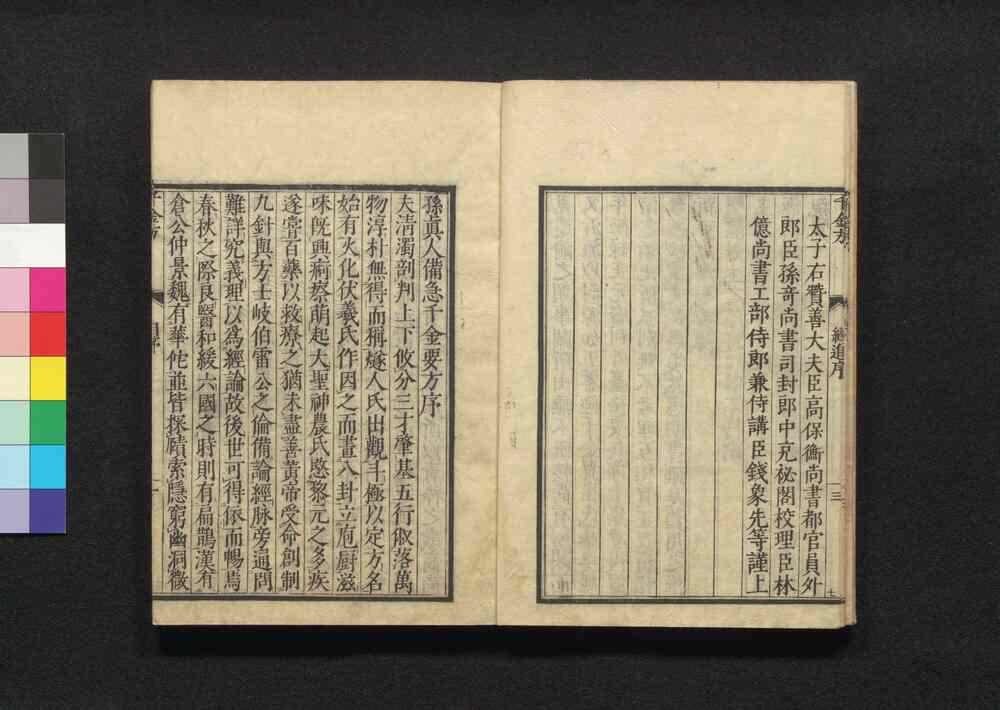 千金方
纔進序
三
太子右贊善大夫臣高保衡尚書都官員外
郎臣孫竒尚書司封郎中充祕閣校理臣林
億尚書工部侍郎兼侍講臣錢象先等謹上
孫真人備急千金要方序
夫清濁剖判上下攸分三才肇基五行俶落萬
物淳朴無得而稱燧人氏出觀斗極以定方名
始有火化伏羲氏作因之而畫八卦立庖厨滋
味旣興痾瘵萌起大聖神農氏愍黎元之多疾
遂嘗百藥以救療之猶未盡善黃帝受命創制
九針與方士岐伯雷公之倫備論經脉旁通問
難詳究義理以爲經論故後世可得依而暢焉
春秋之際良醫和緩六國之時則有扁鵲漢有
倉公仲景魏有華佗並皆探賾索隱窮幽洞微
千金方